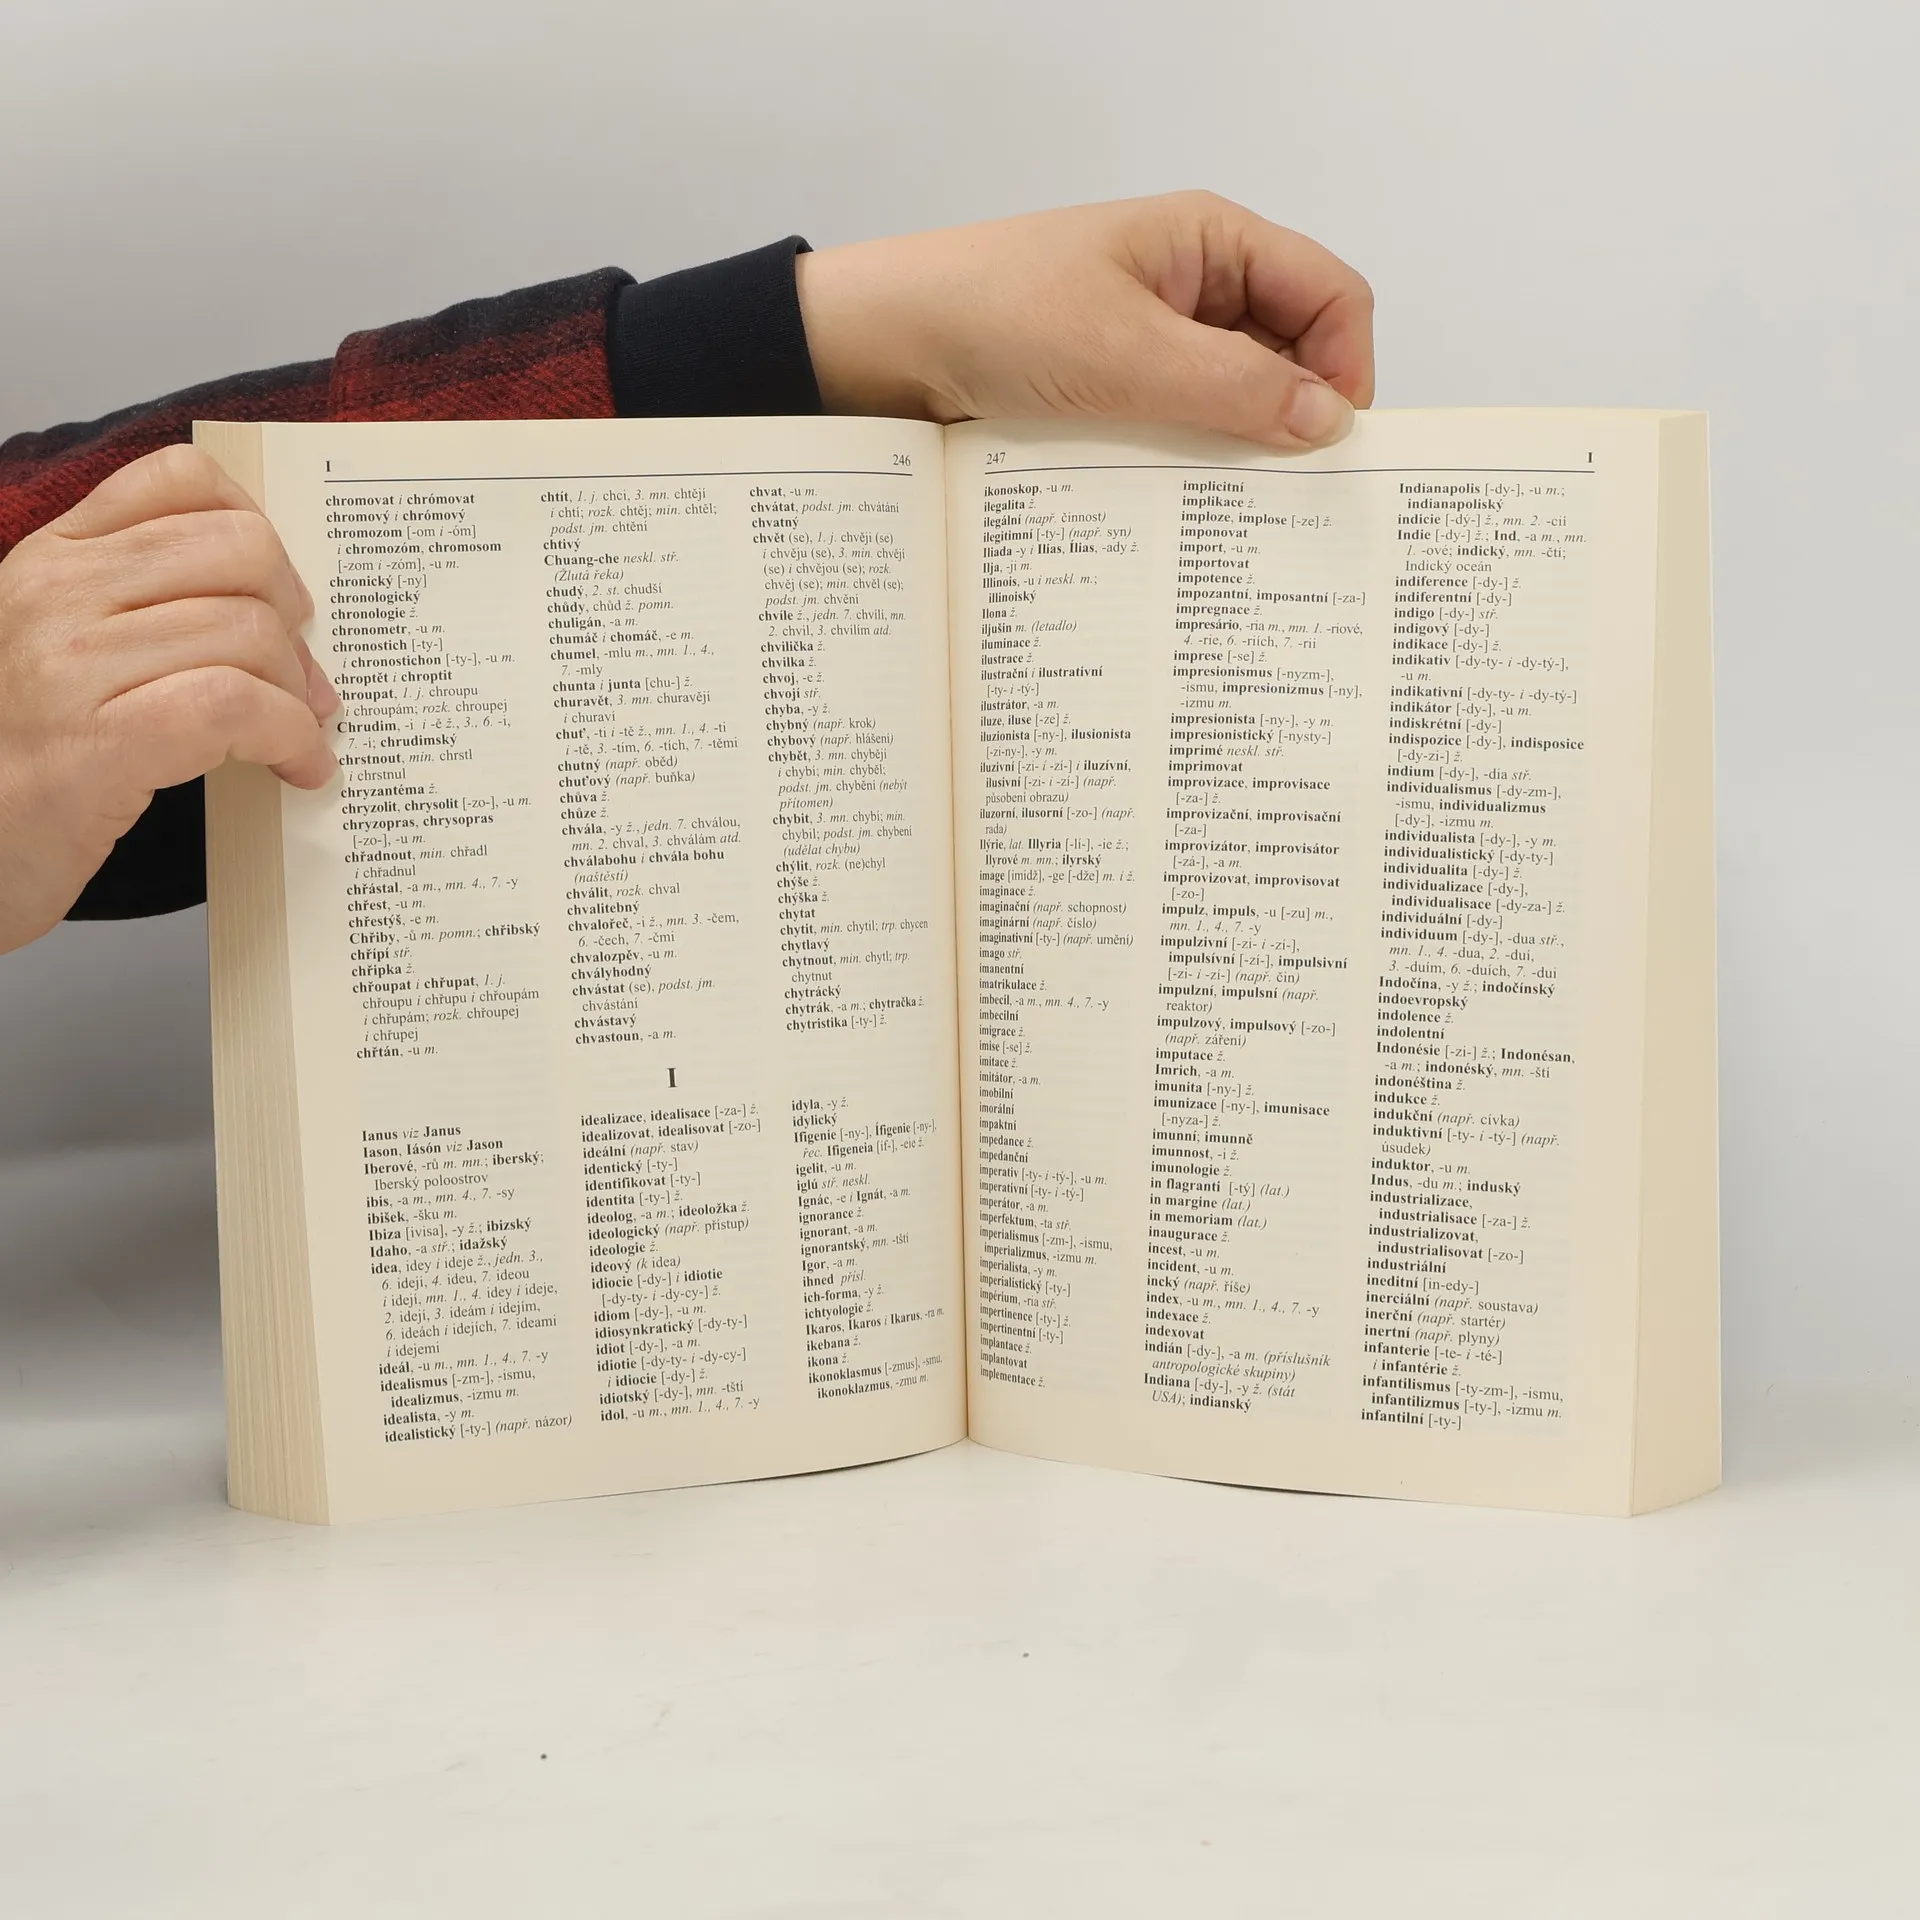 I
246
chromovat i chrómovat
chromový i chrómový
chromozom [-om i -óm]
i chromozóm, chromosom
[-zom i -zóm], -u m.
chronický [-ny]
chronologický
chronologie ž.
chronometr, -u m.
chronostich [-ty-]
i chronostichon [-ty-], -u m.
chroptět i chroptit
chroupat, 1. j. chroupu
i chroupám; rozk. chroupej
Chrudim, -i i -ě ž., 3., 6. -i,
7. -í; chrudimský
chrstnout, min. chrstl
i chrstnul
chryzantéma ž.
chryzolit, chrysolit [-zo-], -u m.
chryzopras, chrysopras
[-zo-], -u m.
chřadnout, min. chřadl
i chřadnul
chřástal, -a m., mn. 4., 7. -y
chřest, -u m.
chřestýš, -e m.
Chřiby, -ů m. pomn.; chřibský
chřípí stř.
chřipka ž.
chřoupat i chřupat, 1. j.
chřoupu i chřupu i chřoupám
i chřupám; rozk. chřoupej
i chřupej
chřtán, -u m.
chtít, 1. j. chci, 3. mn. chtějí
i chtí; rozk. chtěj; min. chtěl;
podst. jm. chtění
chtivý
Chuang-che neskl. stř.
(Žlutá řeka)
chudý, 2. st. chudší
chůdy, chůd ž. pomn.
chuligán, -a m.
chumáč i chomáč, -e m.
chumel, -mlu m., mn. 1., 4.,
7. -mly
chunta i junta [chu-] ž.
churavět, 3. mn. churavějí
i churaví
chuť, -ti i -tě ž., mn. 1., 4. -ti
i -tě, 3. -tím, 6. -tích, 7. -těmi
chutný (např. oběd)
chuťový (např. buňka)
chůva ž.
chůze ž.
chvála, -y ž., jedn. 7. chválou,
mn. 2. chval, 3. chválám atd.
chválabohu i chvála bohu
(naštěstí)
chválit, rozk. chval
chvalitebný
chvalořeč, -i ž., mn. 3. -čem,
6. -čech, 7. -čmi
chvalozpěv, -u m.
chvályhodný
chvástat (se), podst. jm.
chvástání
chvástavý
chvastoun, -a m.
chvat, -u m.
chvátat, podst. jm. chvátání
chvatný
chvět (se), 1. j. chvěji (se)
i chvěju (se), 3. min. chvějí
(se) i chvějou (se); rozk.
chvěj (se); min. chvěl (se);
podst. jm. chvění
chvíle ž., jedn. 7. chvílí, mn.
2. chvil, 3. chvílím atd.
chvilička ž.
chvilka ž.
chvoj, -e ž.
chvojí stř.
chyba, -y ž.
chybný (např. krok)
chybový (např. hlášení)
chybět, 3. mn. chybějí
i chybí; min. chyběl;
podst. jm. chybění (nebýt
přítomen)
chybit, 3. mn. chybí; min.
chybil; podst. jm. chybení
(udělat chybu)
chýlit, rozk. (ne)chyl
chýše ž.
chýška ž.
chytat
chytit, min. chytil; trp. chycen
chytlavý
chytnout, min. chytl; trp.
chytnut
chytrácký
chytrák, -a m.; chytračka ž.
chytristika [-ty-] ž.
I
Ianus viz Janus
Iason, Iásón viz Jason
Iberové, -rů m. mn.; iberský;
Iberský poloostrov
ibis, -a m., mn. 4., 7. -sy
ibišek, -šku m.
Ibiza [ivisa], -y ž.; ibizský
Idaho, -a stř.; idažský
idea, idey i ideje ž., jedn. 3.,
6. ideji, 4. ideu, 7. ideou
i idejí, mn. 1., 4. idey i ideje,
2. idejí, 3. ideám i idejím,
6. ideách i idejích, 7. ideami
i idejemi
ideál, -u m., mn. 1., 4., 7. -y
idealismus [-zm-], -ismu,
idealizmus, -izmu m.
idealista, -y m.
idealistický [-ty-] (např. názor)
idealizace, idealisace [-za-] ž.
idealizovat, idealisovat [-zo-]
ideální (např. stav)
identický [-ty-]
identifikovat [-ty-]
identita [-ty-] ž.
ideolog, -a m.; ideoložka ž.
ideologický (např. přístup)
ideologie ž.
ideový (k idea)
idiocie [-dy-] i idiotie
[-dy-ty- i -dy-cy-] ž.
idiom [-dy-], -u m.
idiosynkratický [-dy-ty-]
idiot [-dy-], -a m.
idiotie [-dy-ty- i -dy-cy-]
i idiocie [-dy-] ž.
idiotský [-dy-], mn. -tští
idol, -u m., mn. 1., 4., 7. -y
idyla, -y ž.
idylický
Ifigenie [-ny-], Ífigenie [-ny-],
řec. Ifigeneia [if-], -eie ž.
igelit, -u m.
iglú stř. neskl.
Ignác, -e i Ignát, -a m.
ignorance ž.
ignorant, -a m.
ignorantský, mn. -tští
Igor, -a m.
ihned přísl.
ich-forma, -y ž.
ichtyologie ž.
Ikaros, Íkaros i Ikarus, -ra m.
ikebana ž.
ikona ž.
ikonoklasmus [-zmus], -smu,
ikonoklazmus, -zmu m.
247
I
ikonoskop, -u m.
ilegalita ž.
ilegální (např. činnost)
ilegitimní [-ty-] (např. syn)
Iliada -y i Ilias, Ílias, -ady ž.
Ilja, -ji m.
Illinois, -u i neskl. m.;
illinoiský
Ilona ž.
iljušin m. (letadlo)
iluminace ž.
ilustrace ž.
ilustrační i ilustrativní
[-ty- i -tý-]
ilustrátor, -a m.
iluze, iluse [-ze] ž.
iluzionista [-ny-], ilusionista
[-zi-ny-], -y m.
iluzivní [-zi- i -zí-] i iluzívní,
ilusivní [-zi- i -zí-] (např.
působení obrazu)
iluzorní, ilusorní [-zo-] (např.
rada)
Ilýrie, lat. Illyria [-lí-], -ie ž.;
Ilyrové m. mn.; ilyrský
image [imidž], -ge [-dže] m. i ž.
imaginace ž.
imaginační (např. schopnost)
imaginární (např. číslo)
imaginativní [-ty-] (např. umění)
imago stř.
imanentní
imatrikulace ž.
imbecil, -a m., mn. 4., 7. -y
imbecilní
imigrace ž.
imise [-se] ž.
imitace ž.
imitátor, -a m.
imobilní
imorální
impaktní
impedance ž.
impedanční
imperativ [-ty- i -tý-], -u m.
imperativní [-ty- i -tý-]
imperátor, -a m.
imperfektum, -ta stř.
imperialismus [-zm-], -ismu,
imperializmus, -izmu m.
imperialista, -y m.
imperialistický [-ty-]
impérium, -ria stř.
impertinence [-ty-] ž.
impertinentní [-ty-]
implantace ž.
implantovat
implementace ž.
implicitní
implikace ž.
imploze, implose [-ze] ž.
imponovat
import, -u m.
importovat
impotence ž.
impozantní, imposantní [-za-]
impregnace ž.
impresário, -ria m., mn. 1. -riové,
4. -rie, 6. -riích, 7. -rii
imprese [-se] ž.
impresionismus [-nyzm-],
-ismu, impresionizmus [-ny],
-izmu m.
impresionista [-ny-], -y m.
impresionistický [-nysty-]
imprimé neskl. stř.
imprimovat
improvizace, improvisace
[-za-] ž.
improvizační, improvisační
[-za-]
improvizátor, improvisátor
[-zá-], -a m.
improvizovat, improvisovat
[-zo-]
impulz, impuls, -u [-zu] m.,
mn. 1., 4., 7. -y
impulzivní [-zi- i -zí-],
impulsívní [-zi-], impulsivní
[-zi- i -zí-] (např. čin)
impulzní, impulsní (např.
reaktor)
impulzový, impulsový [-zo-]
(např. záření)
imputace ž.
Imrich, -a m.
imunita [-ny-] ž.
imunizace [-ny-], imunisace
[-nyza-] ž.
imunní; imunně
imunnost, -i ž.
imunologie ž.
in flagranti [-tý] (lat.)
in margine (lat.)
in memoriam (lat.)
inaugurace ž.
incest, -u m.
incident, -u m.
incký (např. říše)
index, -u m., mn. 1., 4., 7. -y
indexace ž.
indexovat
indián [-dy-], -a m. (příslušník
antropologické skupiny)
Indiana [-dy-], -y ž. (stát
USA); indianský
Indianapolis [-dy-], -u m.;
indianapoliský
indicie [-dý-] ž., mn. 2. -cií
Indie [-dy-] ž.; Ind, -a m., mn.
1. -ové; indický, mn. -čtí;
Indický oceán
indiference [-dy-] ž.
indiferentní [-dy-]
indigo [-dy-] stř.
indigový [-dy-]
indikace [-dy-] ž.
indikativ [-dy-ty- i -dy-tý-],
-u m.
indikativní [-dy-ty- i -dy-tý-]
indikátor [-dy-], -u m.
indiskrétní [-dy-]
indispozice [-dy-], indisposice
[-dy-zi-] ž.
indium [-dy-], -dia stř.
individualismus [-dy-zm-],
-ismu, individualizmus
[-dy-], -izmu m.
individualista [-dy-], -y m.
individualistický [-dy-ty-]
individualita [-dy-] ž.
individualizace [-dy-],
individualisace [-dy-za-] ž.
individuální [-dy-]
individuum [-dy-], -dua stř.,
mn. 1., 4. -dua, 2. -duí,
3. -duím, 6. -duích, 7. -dui
Indočína, -y ž.; indočínský
indoevropský
indolence ž.
indolentní
Indonésie [-zi-] ž.; Indonésan,
-a m.; indonéský, mn. -ští
indonéština ž.
indukce ž.
indukční (např. cívka)
induktivní [-ty- i -tý-] (např.
úsudek)
induktor, -u m.
Indus, -du m.; induský
industrializace,
industrialisace [-za-] ž.
industrializovat,
industrialisovat [-zo-]
industriální
ineditní [in-edy-]
inerciální (např. soustava)
inerční (např. startér)
inertní (např. plyny)
infanterie [-te- i -té-]
i infantérie ž.
infantilismus [-ty-zm-], -ismu,
infantilizmus [-ty-], -izmu m.
infantilní [-ty-]